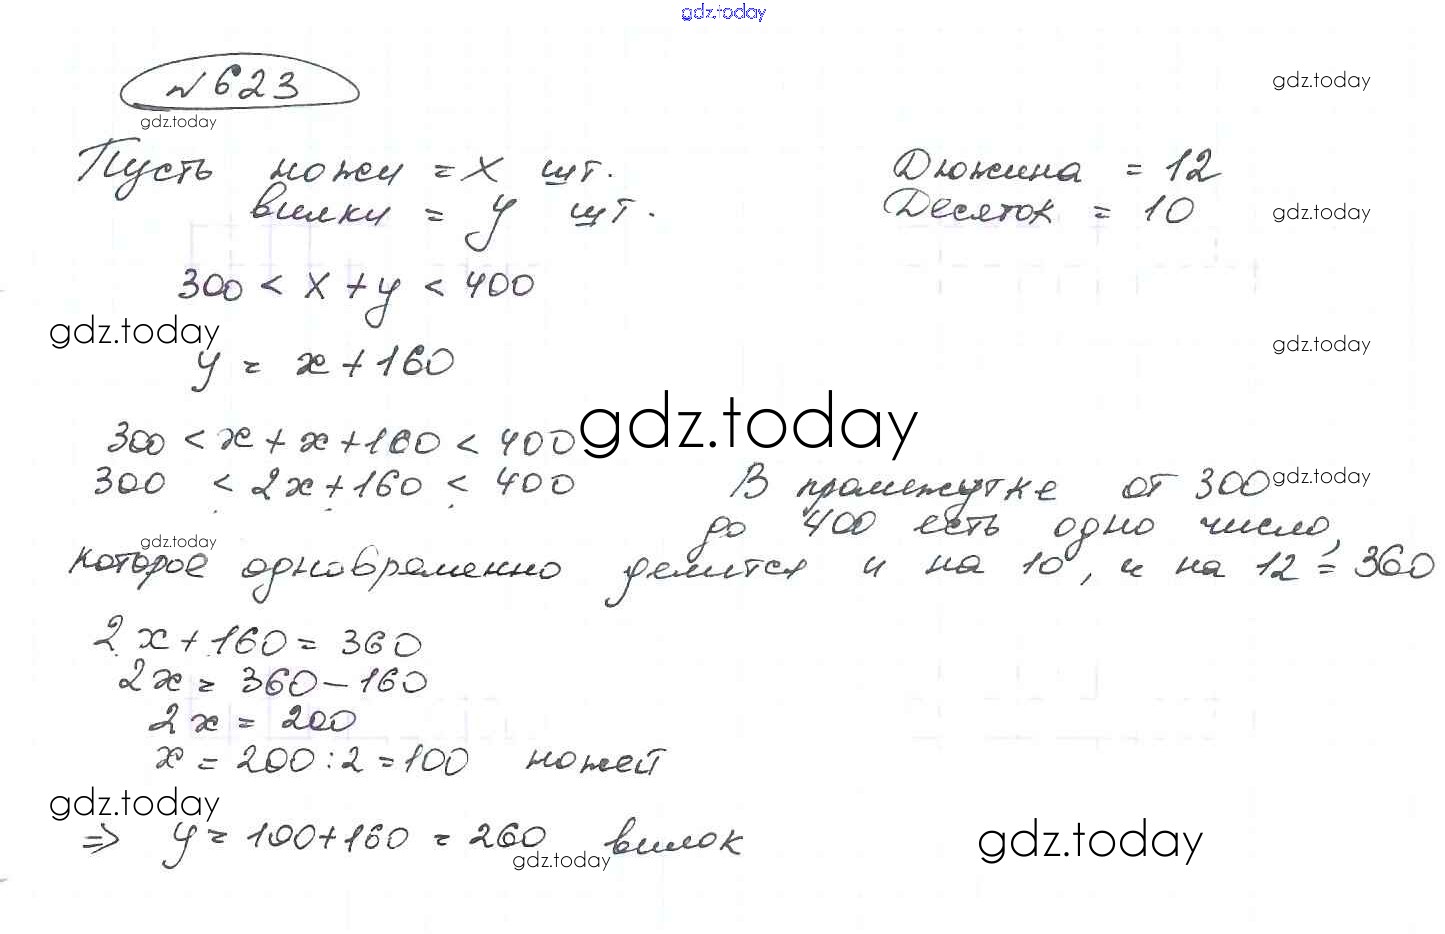 gdz.today
№ 623
gdz.today
gdz.today
Пусть ножи = x шт.
Дюжина = 12
вилки = y шт.
Десяток = 10
gdz.today
300 < x + y < 400
gdz.today
gdz.today
y = x + 160
gdz.today
300 < x + x + 160 < 400
300 < 2x + 160 < 400
В промежутке от 300
gdz.today
до 400 есть одно число,
gdz.today
которое одновременно делится и на 10, и на 12 = 360
2x + 160 = 360
2x = 360 - 160
2x = 200
x = 200 : 2 = 100 ножей
gdz.today
⇒ y = 100 + 160 = 260 вилок
gdz.today
gdz.today